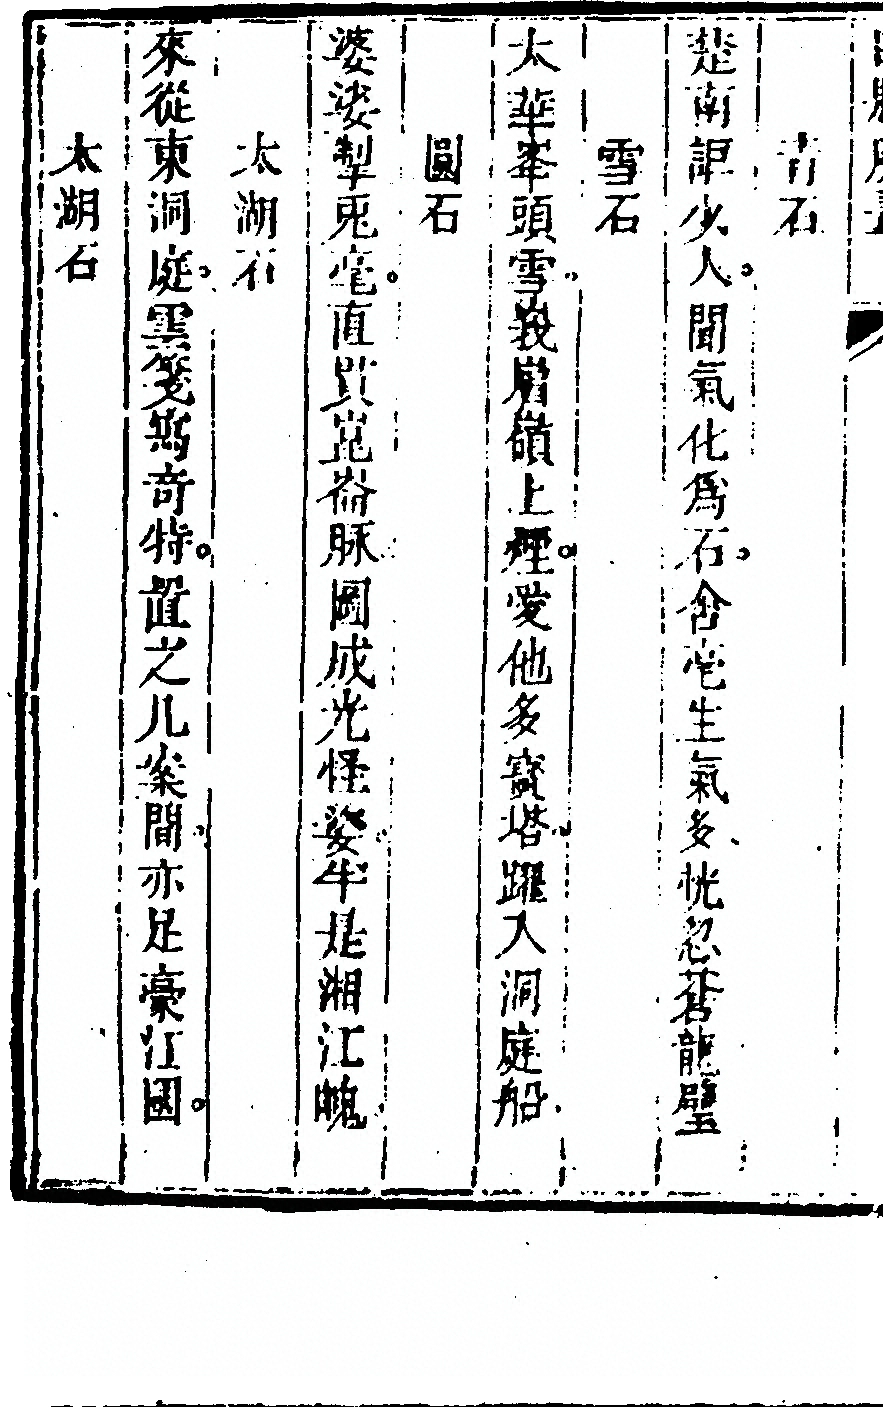 青石
楚南詎少人聞氣化爲石含毫生氣多恍忽蒼龍璧
雪石
太華峯頭雪峩眉嶺上煙愛他多寳塔躍入洞庭船
圓石
婆娑掣兎毫直貫崑崙脉圖成光怪娑半是湘江魄
太湖石
來從東洞庭雲箋寫奇特置之几案間亦足豪江國
太湖石